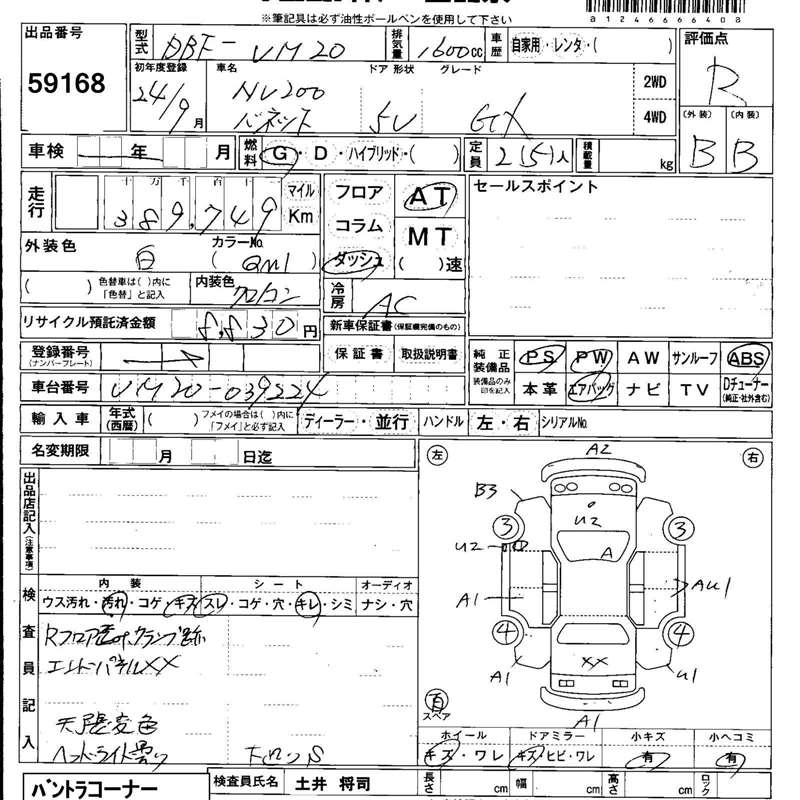 ※筆記具は必ず油性ボールペンを使用して下さい
a1246666408
出品番号
59168
型式 DBF-VM20
排気量 1600cc
車歴 自家用・レンタ・( )
評価点
R
初年度登録 24/9月
車名 NV200 バネット
ドア形状 5V
グレード GX
2WD
4WD
(外装) (内装)
B B
車検 年 月
燃料 G・D・ハイブリッド・( )
定員 2(5)人
積載量 kg
走行 十万千百十一
389,749
マイル
Km
フロア
コラム
ダッシュ
AT
MT
( )速
セールスポイント
外装色 白
カラーNo.
(QM1)
( ) 色替車は( )内に「色替」と記入
内装色
冷房 AC
リサイクル預託済金額 8,830円
新車保証書(保証継続のもの)
保証書 取扱説明書
登録番号
(ナンバープレート)
純正装備品
装備品のみ印を記入
PS PW AW サンルーフ ABS
本革 エアバッグ ナビ TV Dチューナー
(純正・社外含む)
車台番号 VM20-039224
輸入車 年式(西暦) ( ) フメイの場合は( )内に「フメイ」と必ず記入
ディーラー・並行
ハンドル 左・右
シリアルNo.
名変期限 月 日迄
左 右
出品店記入(注意事項)
A2
B3
U2
3 3
U2
A
A1
AU1
4 4
XX
A1
U1
A1
スペア
検査員記入
内装 シート オーディオ
ウス汚れ・汚れ・コゲ・キズ スレ・コゲ・穴・キレ・シミ ナシ・穴
Rフロア クランプ跡
エンドパネルXX
天張変色
ヘッドライト曇り
ホイール ドアミラー 小キズ 小ヘコミ
キズ・ワレ キズ・ヒビ・ワレ 有 有
バントラコーナー
検査員氏名 土井 将司
長さ cm 幅 cm 高さ cm ロック